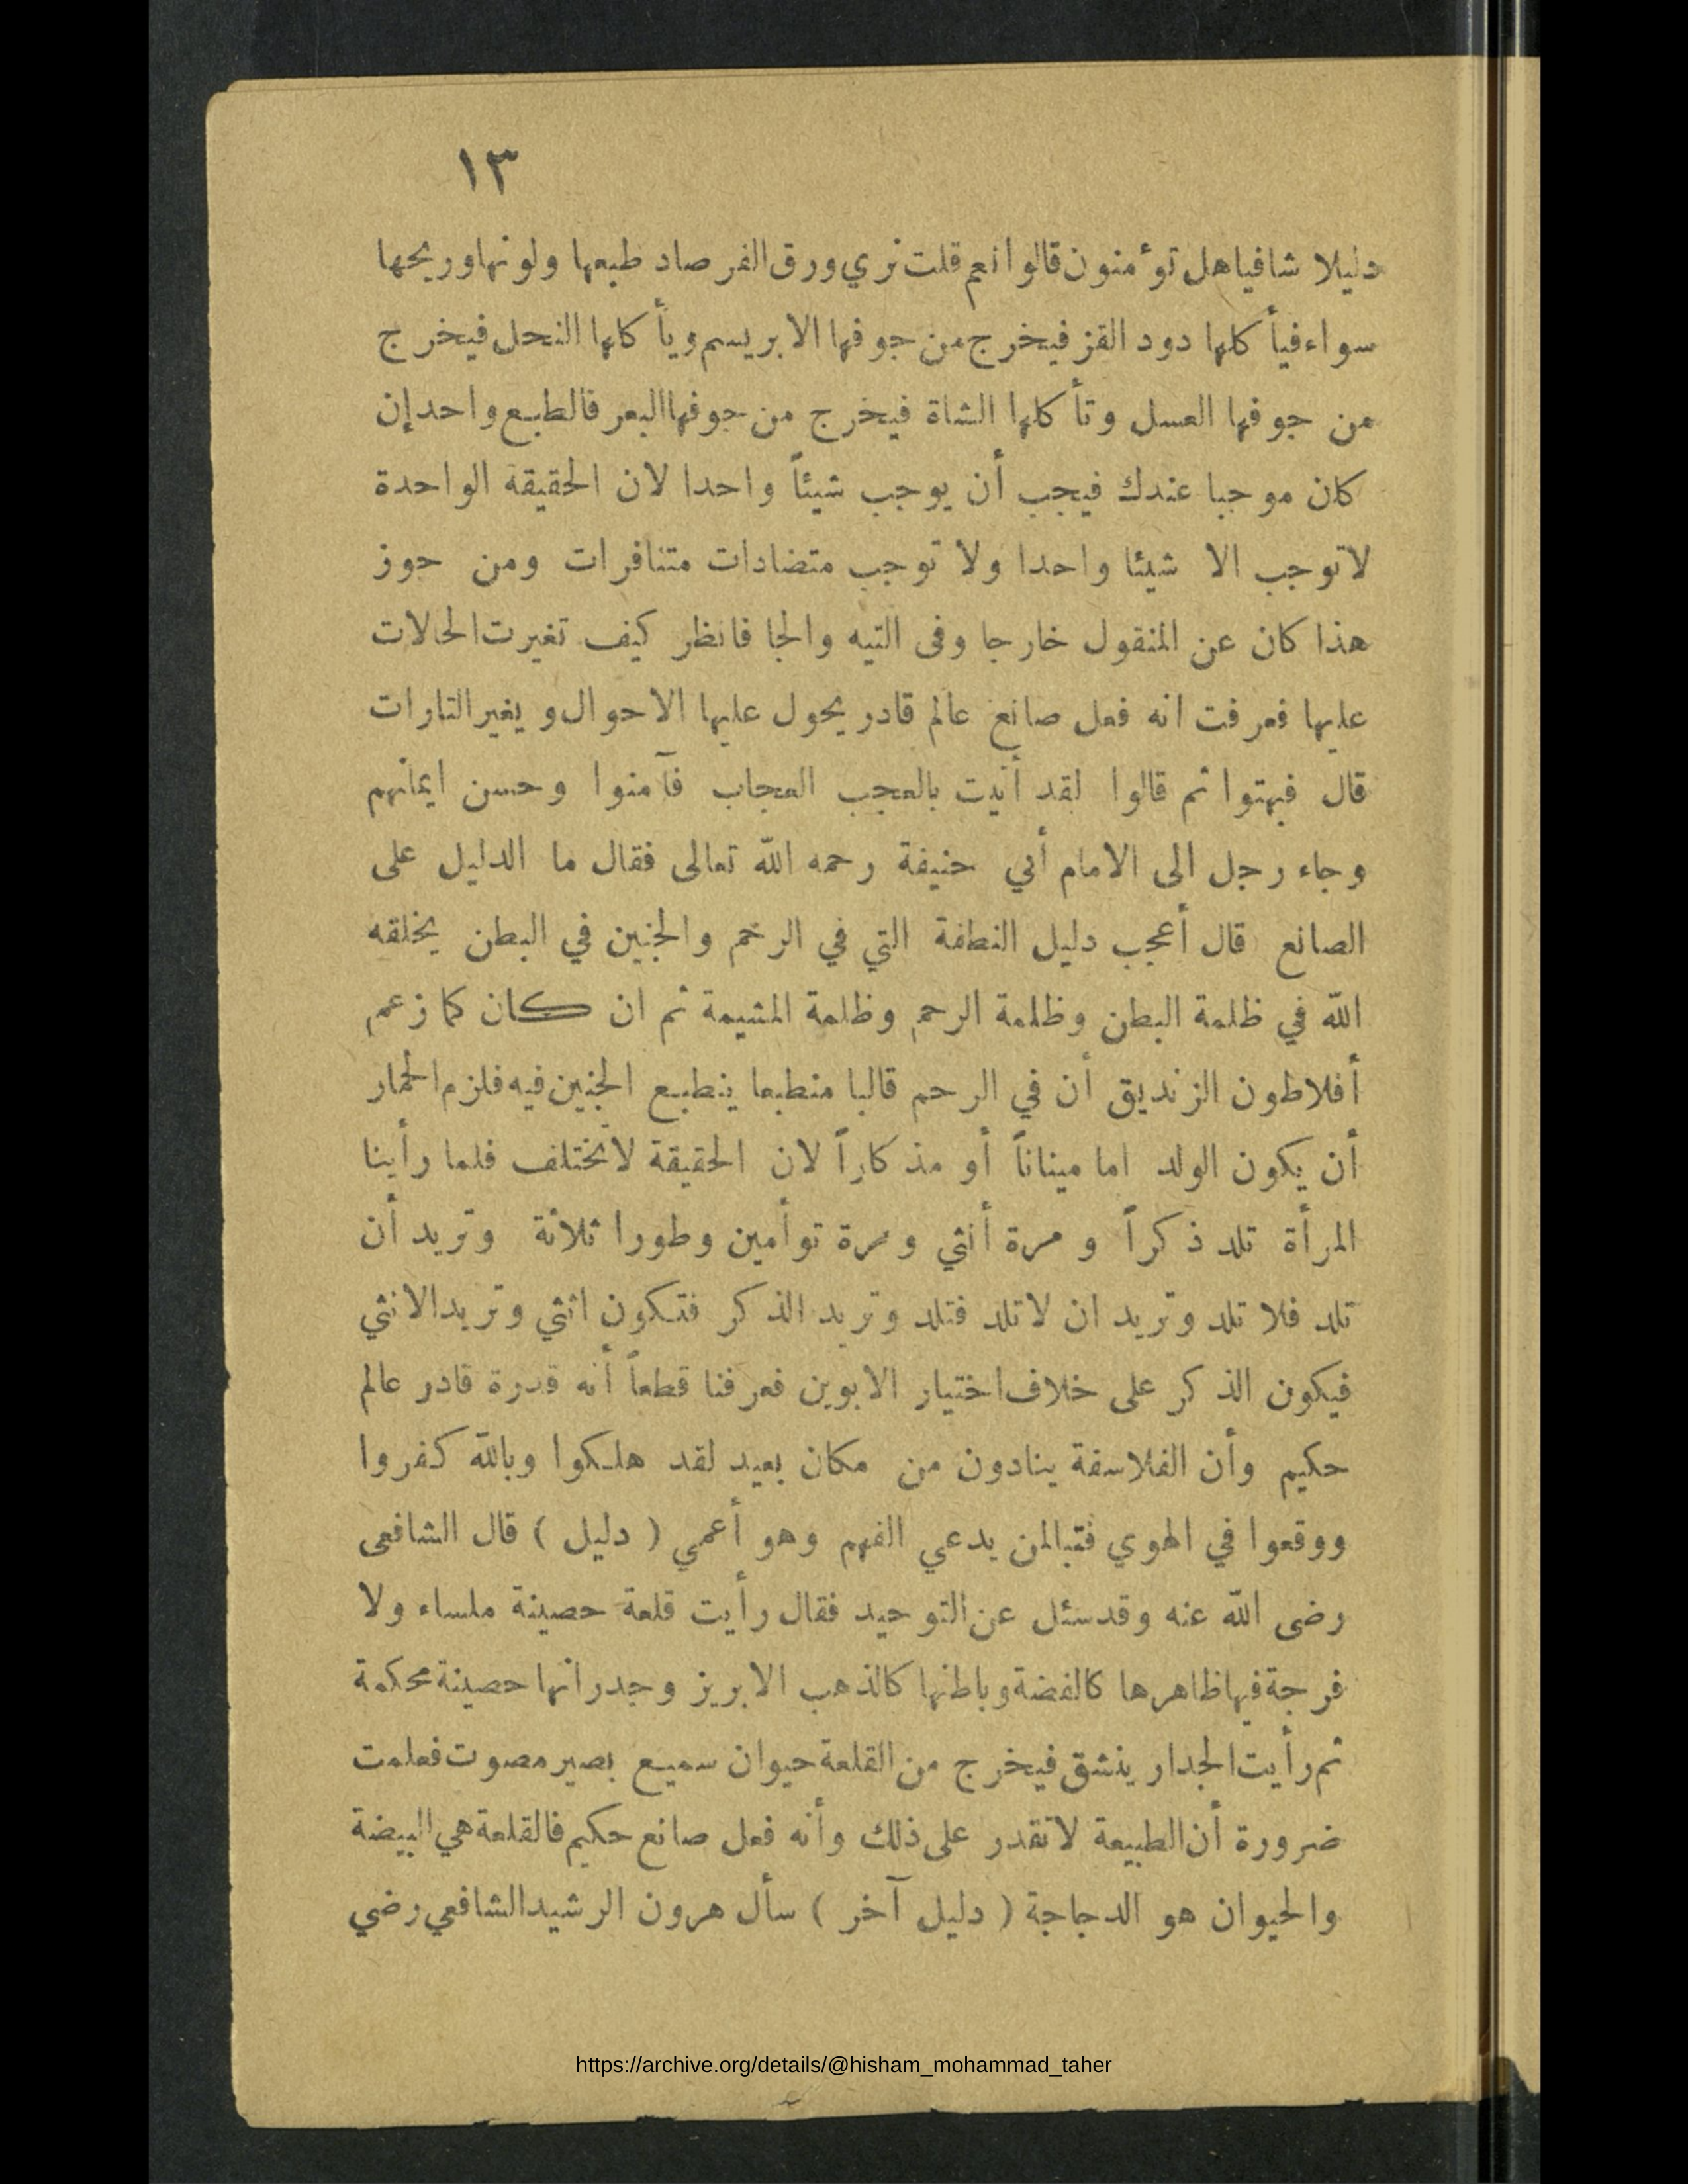 ١٣
دليلا شافيا هل تؤمنون قالوا نعم قلت نري ورق الفرصاد طبعها ولونها وريحها
سواء فيأكلها دود القز فيخرج من جوفها الابريسم ويأكلها النحل فيخرج
من جوفها العسل وتأكلها الشاة فيخرج من جوفها البعر فالطبع واحد إن
كان موجبا عندك فيجب أن يوجب شيئاً واحدا لان الحقيقة الواحدة
لا توجب الا شيئا واحدا ولا توجب متضادات متنافرات ومن جوز
هذا كان عن المنقول خارجا وفى التيه والجا فانظر كيف تغيرت الحالات
عليها فعرفت انه فعل صانع عالم قادر يحول عليها الاحوال و يغير التارات
قال فبهتوا ثم قالوا لقد أتيت بالعجب العجاب فآمنوا وحسن ايمانهم
وجاء رجل الى الامام أبي حنيفة رحمه الله تعالى فقال ما الدليل على
الصانع قال أعجب دليل النطفة التي في الرحم والجنين في البطن يخلقه
الله في ظلمة البطن وظلمة الرحم وظلمة المشيمة ثم ان كان كما زعم
أفلاطون الزنديق أن في الرحم قالبا منطبعا ينطبع الجنين فيه فلزم الحمار
أن يكون الولد اما مينانأ أو مذكاراً لان الحقيقة لا تختلف فلما رأينا
المرأة تلد ذكراً و مرة أنثي و مرة توأمين وطورا ثلاثة وتريد أن
تلد فلا تلد وتريد ان لا تلد فتلد وتريد الذكر فتكون انثي وتريد الانثي
فيكون الذكر على خلاف اختيار الابوين فعرفنا قطعاً أنه قدرة قادر عالم
حكيم وأن الفلاسفة ينادون من مكان بعيد لقد هلكوا وبالله كفروا
ووقعوا في الهوي فتبالمن يدعي الفهم وهو أعمي ( دليل ) قال الشافعى
رضى الله عنه وقد سئل عن التوحيد فقال رأيت قلعة حصينة ملساء ولا
فرجة فيها ظاهرها كالفضة وباطنها كالذهب الابريز وجدرانها حصينة محكمة
ثم رأيت الجدار ينشق فيخرج من القلعة حيوان سميع بصير مصوت فعلمت
ضرورة أن الطبيعة لا تقدر على ذلك وأنه فعل صانع حكيم فالقلعة هي البيضة
والحيوان هو الدجاجة ( دليل آخر ) سأل هرون الرشيد الشافعي رضي
https://archive.org/details/@hisham_mohammad_taher